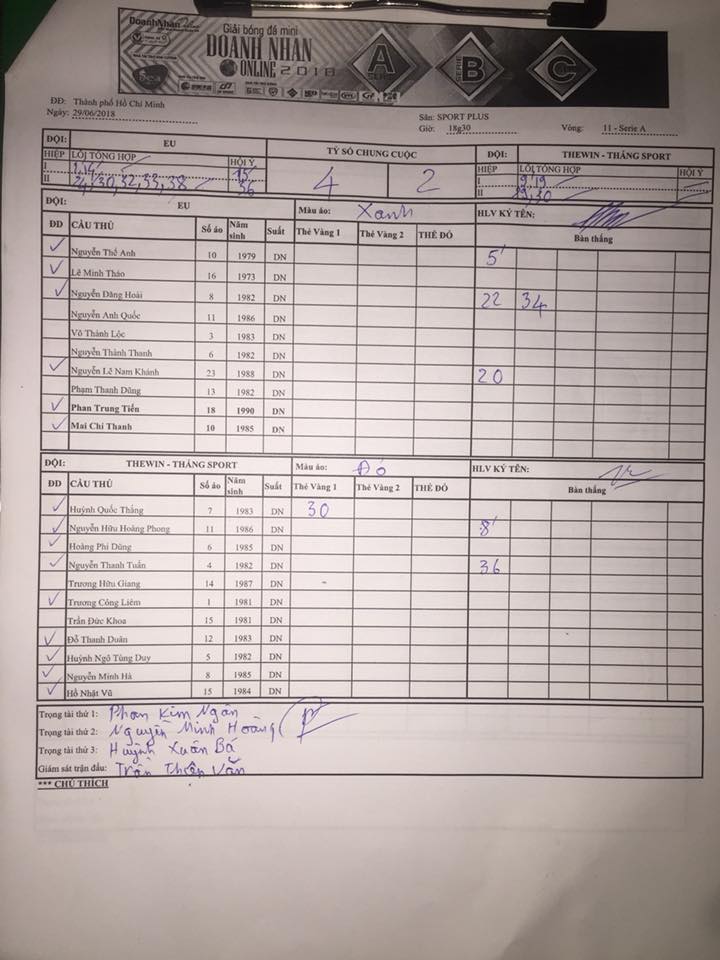 DoanhNhân
Giải bóng đá mini
DOANH NHÂN
ONLINE 2018
A B C
ĐĐ: Thành phố Hồ Chí Minh
Ngày: 29/06/2018
Sân: SPORT PLUS
Giờ: 18g30 Vòng: 11 - Serie A
ĐỘI: EU TỶ SỐ CHUNG CUỘC ĐỘI: THEWIN - THẮNG SPORT
HIỆP LỖI TỔNG HỢP HỘI Ý 4 2 HIỆP LỖI TỔNG HỢP HỘI Ý
I 15' I 9' 19
II 24, 30, 32, 33, 38 36 II 30
ĐỘI: EU Màu áo: Xanh HLV KÝ TÊN:
ĐD CẦU THỦ Số áo Năm sinh Suất Thẻ Vàng 1 Thẻ Vàng 2 THẺ ĐỎ Bàn thắng
✓ Nguyễn Thế Anh 10 1979 DN 5'
✓ Lê Minh Thảo 16 1973 DN
✓ Nguyễn Đăng Hoài 8 1982 DN 22 34
Nguyễn Anh Quốc 11 1986 DN
Võ Thành Lộc 3 1983 DN
Nguyễn Thành Thanh 6 1982 DN
✓ Nguyễn Lê Nam Khánh 23 1988 DN 20
Phạm Thanh Dũng 13 1982 DN
✓ Phan Trung Tiến 18 1990 DN
✓ Mai Chí Thanh 10 1985 DN
ĐỘI: THEWIN - THẮNG SPORT Màu áo: Đỏ HLV KÝ TÊN:
ĐD CẦU THỦ Số áo Năm sinh Suất Thẻ Vàng 1 Thẻ Vàng 2 THẺ ĐỎ Bàn thắng
✓ Huỳnh Quốc Thắng 7 1983 DN 30
✓ Nguyễn Hữu Hoàng Phong 11 1986 DN 8'
✓ Hoàng Phi Dũng 6 1985 DN
✓ Nguyễn Thanh Tuấn 4 1982 DN 36
Trương Hữu Giang 14 1987 DN -
✓ Trương Công Liêm 1 1981 DN
Trần Đức Khoa 15 1981 DN
✓ Đỗ Thanh Duân 12 1983 DN
✓ Huỳnh Ngô Tùng Duy 5 1982 DN
✓ Nguyễn Minh Hà 8 1985 DN
✓ Hồ Nhật Vũ 15 1984 DN
Trọng tài thứ 1: Phan Kim Ngân
Trọng tài thứ 2: Nguyễn Minh Hoàng
Trọng tài thứ 3: Huỳnh Xuân Bá
Giám sát trận đấu: Trần Thiện Văn
*** CHÚ THÍCH